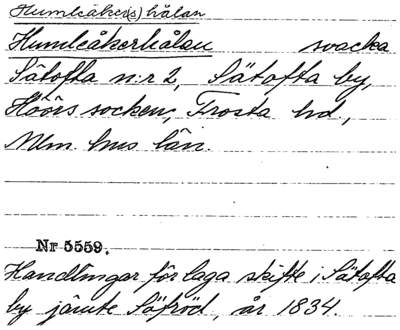 Humleåker(s)hålan
Humleåkerhålan svacka
Sätofta n:r 2, Sätofta by,
Höörs socken, Frosta hd,
Mlm. hus län.
Nr 5559.
Handlingar för laga skifte i Sätofta
by jämte Söfröd, år 1834.